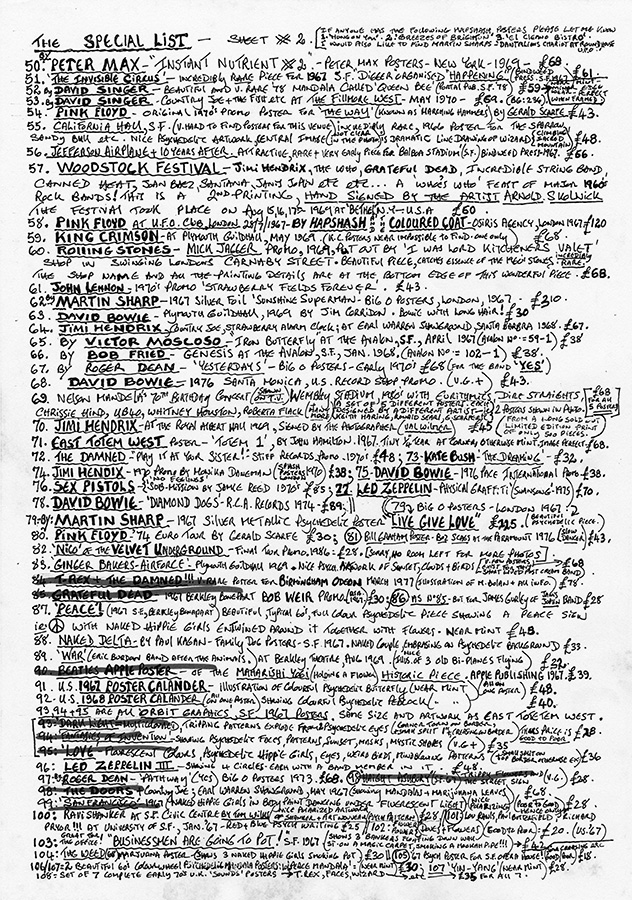 THE SPECIAL LIST - SHEET № 2.
IF ANYONE HAS THE FOLLOWING HAPSHASH, POSTERS PLEASE LET ME KNOW
1. 'HUNG ON YOU' 2. BREEZES OF BRIGHTON 3. 'EL CLEANO BISTRO'.
I WOULD ALSO LIKE TO FIND MARTIN SHARPS - DANTALIONS CHARIOT AT ROUNDHOUSE
U.F.O
50. BY PETER MAX - "INSTANT NUTRIENT №2" - PETER MAX POSTERS - NEW YORK - 1969 - £68
51. 'THE INVISIBLE CIRCUS' - INCREDIBLY RARE PIECE FOR 1967 S.F. 'DIGGER ORGANISED 'HAPPENING' £61
52. BY DAVID SINGER - BEAUTIFUL AND V. RARE '78 MANDALA CALLED 'QUEEN BEE' (PORTAL PUB. S.F. '78)
53. BY DAVID SINGER - COUNTRY JOE + THE FISH ETC AT THE FILLMORE WEST - MAY 1970 - £69. (BG:236)
54. PINK FLOYD - ORIGINAL 1970's PROMO POSTER FOR 'THE WALL' (KNOWN AS MARCHING HAMMERS) BY GERALD SCARFE £43.
55. CALIFORNIA HALL, S.F. (V. HARD TO FIND POSTERS FOR THIS VENUE) INCREDIBLY RARE, 1966 POSTER FOR THE SPARROW,
SANDY BULL ETC. - NICE PSYCHEDELIC ARTWORK, CENTRAL IMAGE IS DRAMATIC LINE DRAWING OF WIZARD £48.
56. JEFFERSON AIRPLANE + 10 YEARS AFTER. ATTRACTIVE, RARE + VERY EARLY PIECE FOR BALBOA STADIUM (S.F.) BINDWEED PRESS-1967. £66.
57. WOODSTOCK FESTIVAL - JIMI HENDRIX, THE WHO, GRATEFUL DEAD, INCREDIBLE STRING BAND,
CANNED HEAT, JOAN BAEZ, SANTANA, JANIS JOPLIN ETC ETC... A WHO'S WHO' FEAST OF MAJOR 1960s
ROCK BANDS! THIS IS A MINT 2ND PRINTING, HAND SIGNED BY THE ARTIST ARNOLD. SKOLNICK
THE FESTIVAL TOOK PLACE ON AUG 15, 16, 17TH 1969 AT BETHEL N.Y - U.S.A £60.
58. PINK FLOYD AT U.F.O. CLUB, LONDON 28/7/1967 - BY HAPSHASH & THE COLOURED COAT - OSIRIS AGENCY, LONDON 1967 £120
59. KING CRIMSON - AT PLYMOUTH GUILDHALL, MAY 1969 (K.C. POSTERS NEAR IMPOSSIBLE TO FIND - ONE ONLY) £68.
60. ROLLING STONES - MICK JAGGER PROMO, 1969, PUT OUT BY 'I WAS LORD KITCHENERS VALET'
SHOP IN SWINGING LONDONS CARNABY STREET - BEAUTIFUL PIECE, CATCHES ESSENCE OF THE 1960's STONES. INCREDIBLY RARE,
THE SHOP NAME AND ALL THE PRINTING DETAILS ARE AT THE BOTTOM EDGE OF THIS WONDERFUL PIECE. £68.
61. JOHN LENNON - 1970's PROMO 'STRAWBERRY FIELDS FOREVER'. £43.
62. BY MARTIN SHARP - 1967 SILVER FOIL 'SUNSHINE SUPERMAN - BIG O POSTERS, LONDON, 1967 - £210.
63. DAVID BOWIE - PLYMOUTH GUILDHALL, 1969 BY JIM CORRIDON. BOWIE WITH LONG HAIR! £30
64. JIMI HENDRIX, COUNTRY JOE, STRAWBERRY ALARM CLOCK; AT EARL WARREN SHOWGROUND, SANTA BARBARA 1968. £67.
65. BY VICTOR MOSCOSO - IRON BUTTERFLY AT THE AVALON, S.F., APRIL 1967 (AVALON № = 59-1) £38
66. BY BOB FRIED - GENESIS AT THE AVALON, S.F., JAN. 1968. (AVALON № = 102-1) £38.
67. BY ROGER DEAN - 'YESTERDAYS' - BIG O POSTERS - EARLY 1970's £68 (FOR THE BAND 'YES')
68. DAVID BOWIE - 1976 SANTA MONICA, U.S. RECORD SHOP PROMO. (V.G. +) £43.
69. NELSON MANDELA 70TH BIRTHDAY CONCERT WEMBLEY STADIUM 1980's WITH EURITHMICS, DIRE STRAIGHTS
CHRISSIE HIND, UB40, WHITNEY HOUSTON, ROBERTA FLACK A SET OF 5 DIFFERENT POSTERS EACH DESIGNED BY A DIFFERENT ARTIST £68 FOR ALL 5 POSTERS
70. JIMI HENDRIX - AT THE ROYAL ALBERT HALL 1969, SIGNED BY THE PHOTOGRAPHER (VAL WILMER) £45 FROM A LONG SOLD OUT LIMITED EDITION SET OF ONLY 500 PIECES.
71. EAST TOTEM WEST POSTER - 'TOTEM 1', BY JOHN HAMILTON. 1967. TINY ½" TEAR AT CORNER, OTHERWISE MINT, IMAGE PERFECT £68.
72. THE DAMNED - "PLAY IT AT YOUR SISTER" - STIFF RECORDS PROMO. 1970's £48; 73 - KATE BUSH - 'THE DREAMING' - £32.
74. JIMI HENDIX - 1970 PROMO BY MONIKA DANEMAN £38; 75 - DAVID BOWIE - 1976 PACE INTERNATIONAL PROMO £38.
76. SEX PISTOLS - 'NO FEELINGS' SUB-MISSION BY JAMIE REED 1970's £85; 77 LED ZEPPELIN - PHYSICAL GRAFFITI (SWANSONG '1975) £70.
78. DAVID BOWIE - 'DIAMOND DOGS' - R.C.A. RECORDS 1974 - £89;
79 - BY: MARTIN SHARP - 1967 SILVER METALLIC PSYCHEDELIC POSTER 'LIVE GIVE LOVE' £225. (BIG O POSTERS - LONDON 1967) (BEAUTIFUL PSYCHEDELIC PIECE).
80. PINK FLOYD '74 EURO TOUR BY GERALD SCARFE £30; 81 BILL GRAHAM POSTER - BOZ SCAGS AT THE PARAMOUNT 1976 £43.
82. 'NICO' OF THE VELVET UNDERGROUND - FINAL TOUR PROMO, 1986 - £28. (SORRY, NO ROOM LEFT FOR MORE PHOTOS)
83. GINGER BAKERS - AIRFORCE - PLYMOUTH GUILDHALL 1969 - NICE PSYCH. ARTWORK OF SUNSET, CLOUDS + BIRDS £68
84. T-REX + THE DAMNED!!! V. RARE POSTER FOR BIRMINGHAM ODEON MARCH 1977 (ILLUSTRATION OF M. BOLAN + ALL INFO.) £78.
85. GRATEFUL DEAD 1967 BERKELEY BONAPART BOB WEIR PROMO £30; 86 AS № 85 - BUT FOR JAMES GURLEY OF JANIS JOPLIN BAND £28
87. 'PEACE'! (1967 S.F, BERKELEY BONAPART) BEAUTIFUL, TYPICAL 60's, FULL COLOUR PSYCHEDELIC PIECE SHOWING A PEACE SIGN
ie: ☮ WITH NAKED HIPPIE GIRLS ENTWINED AROUND IT TOGETHER WITH FLOWERS - NEAR MINT £48.
88. NAKED DELTA - BY PAUL KAGAN - FAMILY DOG POSTERS - S.F. 1967. NAKED COUPLE EMBRACING ON PSYCHEDELIC BACKGROUND £33.
89. 'WAR' (ERIC BURDON BAND AFTER THE ANIMALS), AT BERKLEY THEATRE, AUG 1969. (ILLUS. OF 3 OLD BI-PLANES FLYING) £22.
90. BEATLES APPLE POSTER - OF THE MAHARISHI YOGI (HOLDING A FLOWER) HISTORIC PIECE. APPLE PUBLISHING 1967. £39.
91. U.S. 1967 POSTER CALANDER - ILLUSTRATION OF COLOURFUL PSYCHEDELIC BUTTERFLY (NEAR MINT) £48.
92. U.S. 1968 POSTER CALANDER (ALL ON ONE POSTER) SHOWING COLOURFUL PSYCHEDELIC PEACOCK £40.
93, 94 + 95 ARE ALL ORBIT GRAPHICS, S.F. 1967 POSTERS. SOME SIZE AND ARTWORK AS EAST TOTEM WEST.
93. DARK TRIPPING PATTERNS EXPLODE FROM PSYCHEDELIC EYES THUS PRICE IS £28 GOOD TO POOR
94. FANTASIES OF INVENTION - SHOWING PSYCHEDELIC FACES, PATTERNS, SUNSET, MASKS, MYSTIC SHOES (V.G +) £35
95. 'LOVE' FLUORESCENT COLOURS, PSYCHEDELIC HIPPIE GIRLS, EYES, WEIRD BIRDS, MIND BENDING PATTERNS £36
96. LED ZEPPELIN III - SHOWING 4 CIRCLES - EACH WITH A BAND MEMBER IN IT. £48.
97. ROGER DEAN - 'PATHWAY' (YES) BIG O POSTERS 1973. £68, THE STREET SIGN (V.G.) £28.
98. THE DOORS + COUNTRY JOE; EARL WARREN SHOWGROUND, MAY 1967 (SHOWING MANDALAS + MARIJUANA LEAVES) £68.
99. SAN FRANCISCO' 1967 (NAKED HIPPIE GIRLS IN BODY PAINT DANCING UNDER 'FLUORESCENT LIGHT') POOR TO GOOD £28
100: RAVI SHANKER AT S.F. CIVIC CENTRE BY TOM WILKES £28 101 LOU RAWLS, PAUL BUTTERFIELD, RICHARD
PRIOR!!! AT UNIVERSITY OF S.F., JAN. '67 - RED + BLUE PSYCH WRITING £25 102: FLOWER POWER (DOVES + FLOWERS) (GOOD TO POOR) £20. (U.S. '67)
103: "BUSINESSMEN ARE GOING TO POT!" S.F. 1967 SHOWS 3 BANKERS FROM WAY DOWN SIT ON A MAGIC CARPET, SMOKING A HOOKAH PIPE!!! £42
104: THE WEED (60's MARIJUANA POSTER - SHOWS 3 NAKED HIPPIE GIRLS SMOKING POT) £30 105 '67 PSYCH POSTER FOR S.F. OPERA HOUSE! £18.
106/107: 2 BEAUTIFUL 60's (NEAR MINT) £30; 107 'YIN-YANG' (NEAR MINT) £28.
108: SET OF 7 COMPLETE EARLY 70's U.K. 'SOUNDS' POSTERS → T. REX, FACES, WIZZARD ETC £35 FOR ALL 7.